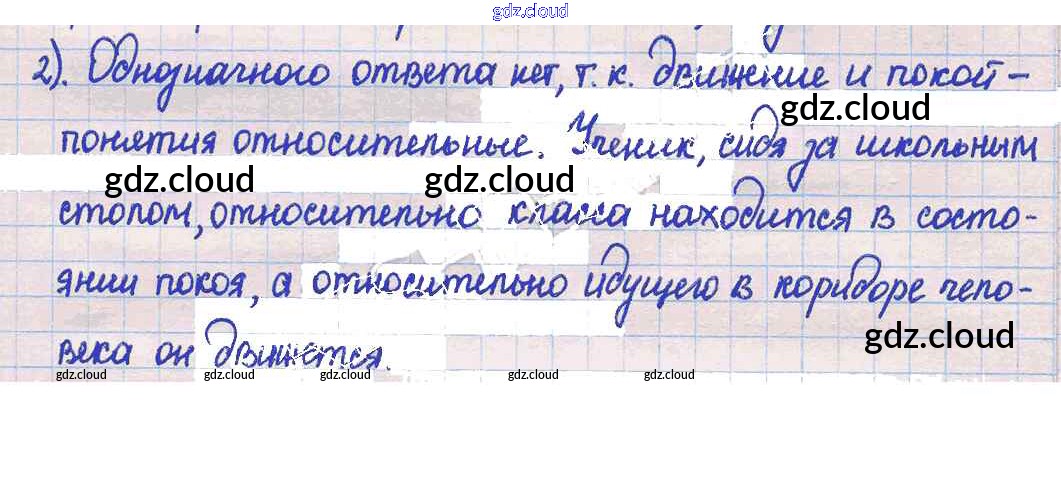 gdz.cloud
2). Однозначного ответа нет, т. к. движение и покой –
gdz.cloud
понятия относительные. Ученик, сидя за школьным
gdz.cloud gdz.cloud
столом, относительно класса находится в состо-
янии покоя, а относительно идущего в коридоре чело-
gdz.cloud
века он движется.
gdz.cloud gdz.cloud gdz.cloud gdz.cloud gdz.cloud